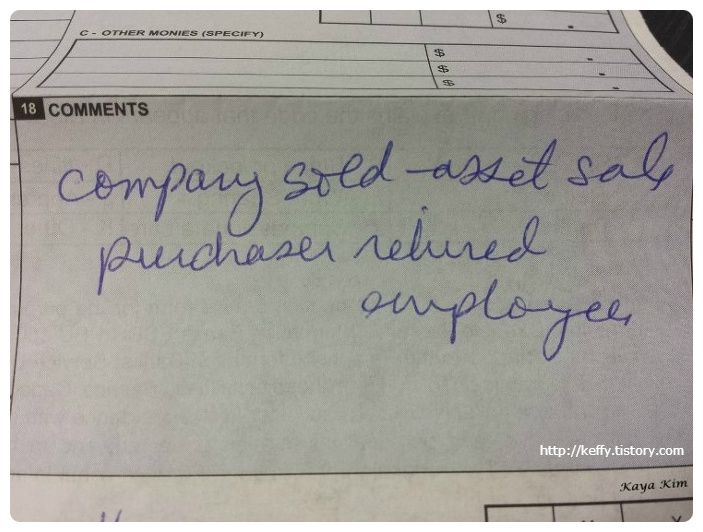 $
C - OTHER MONIES (SPECIFY)
$
$
$
18 COMMENTS
company sold - asset sale
purchaser rehired
employees
http://keffy.tistory.com
Kaya Kim